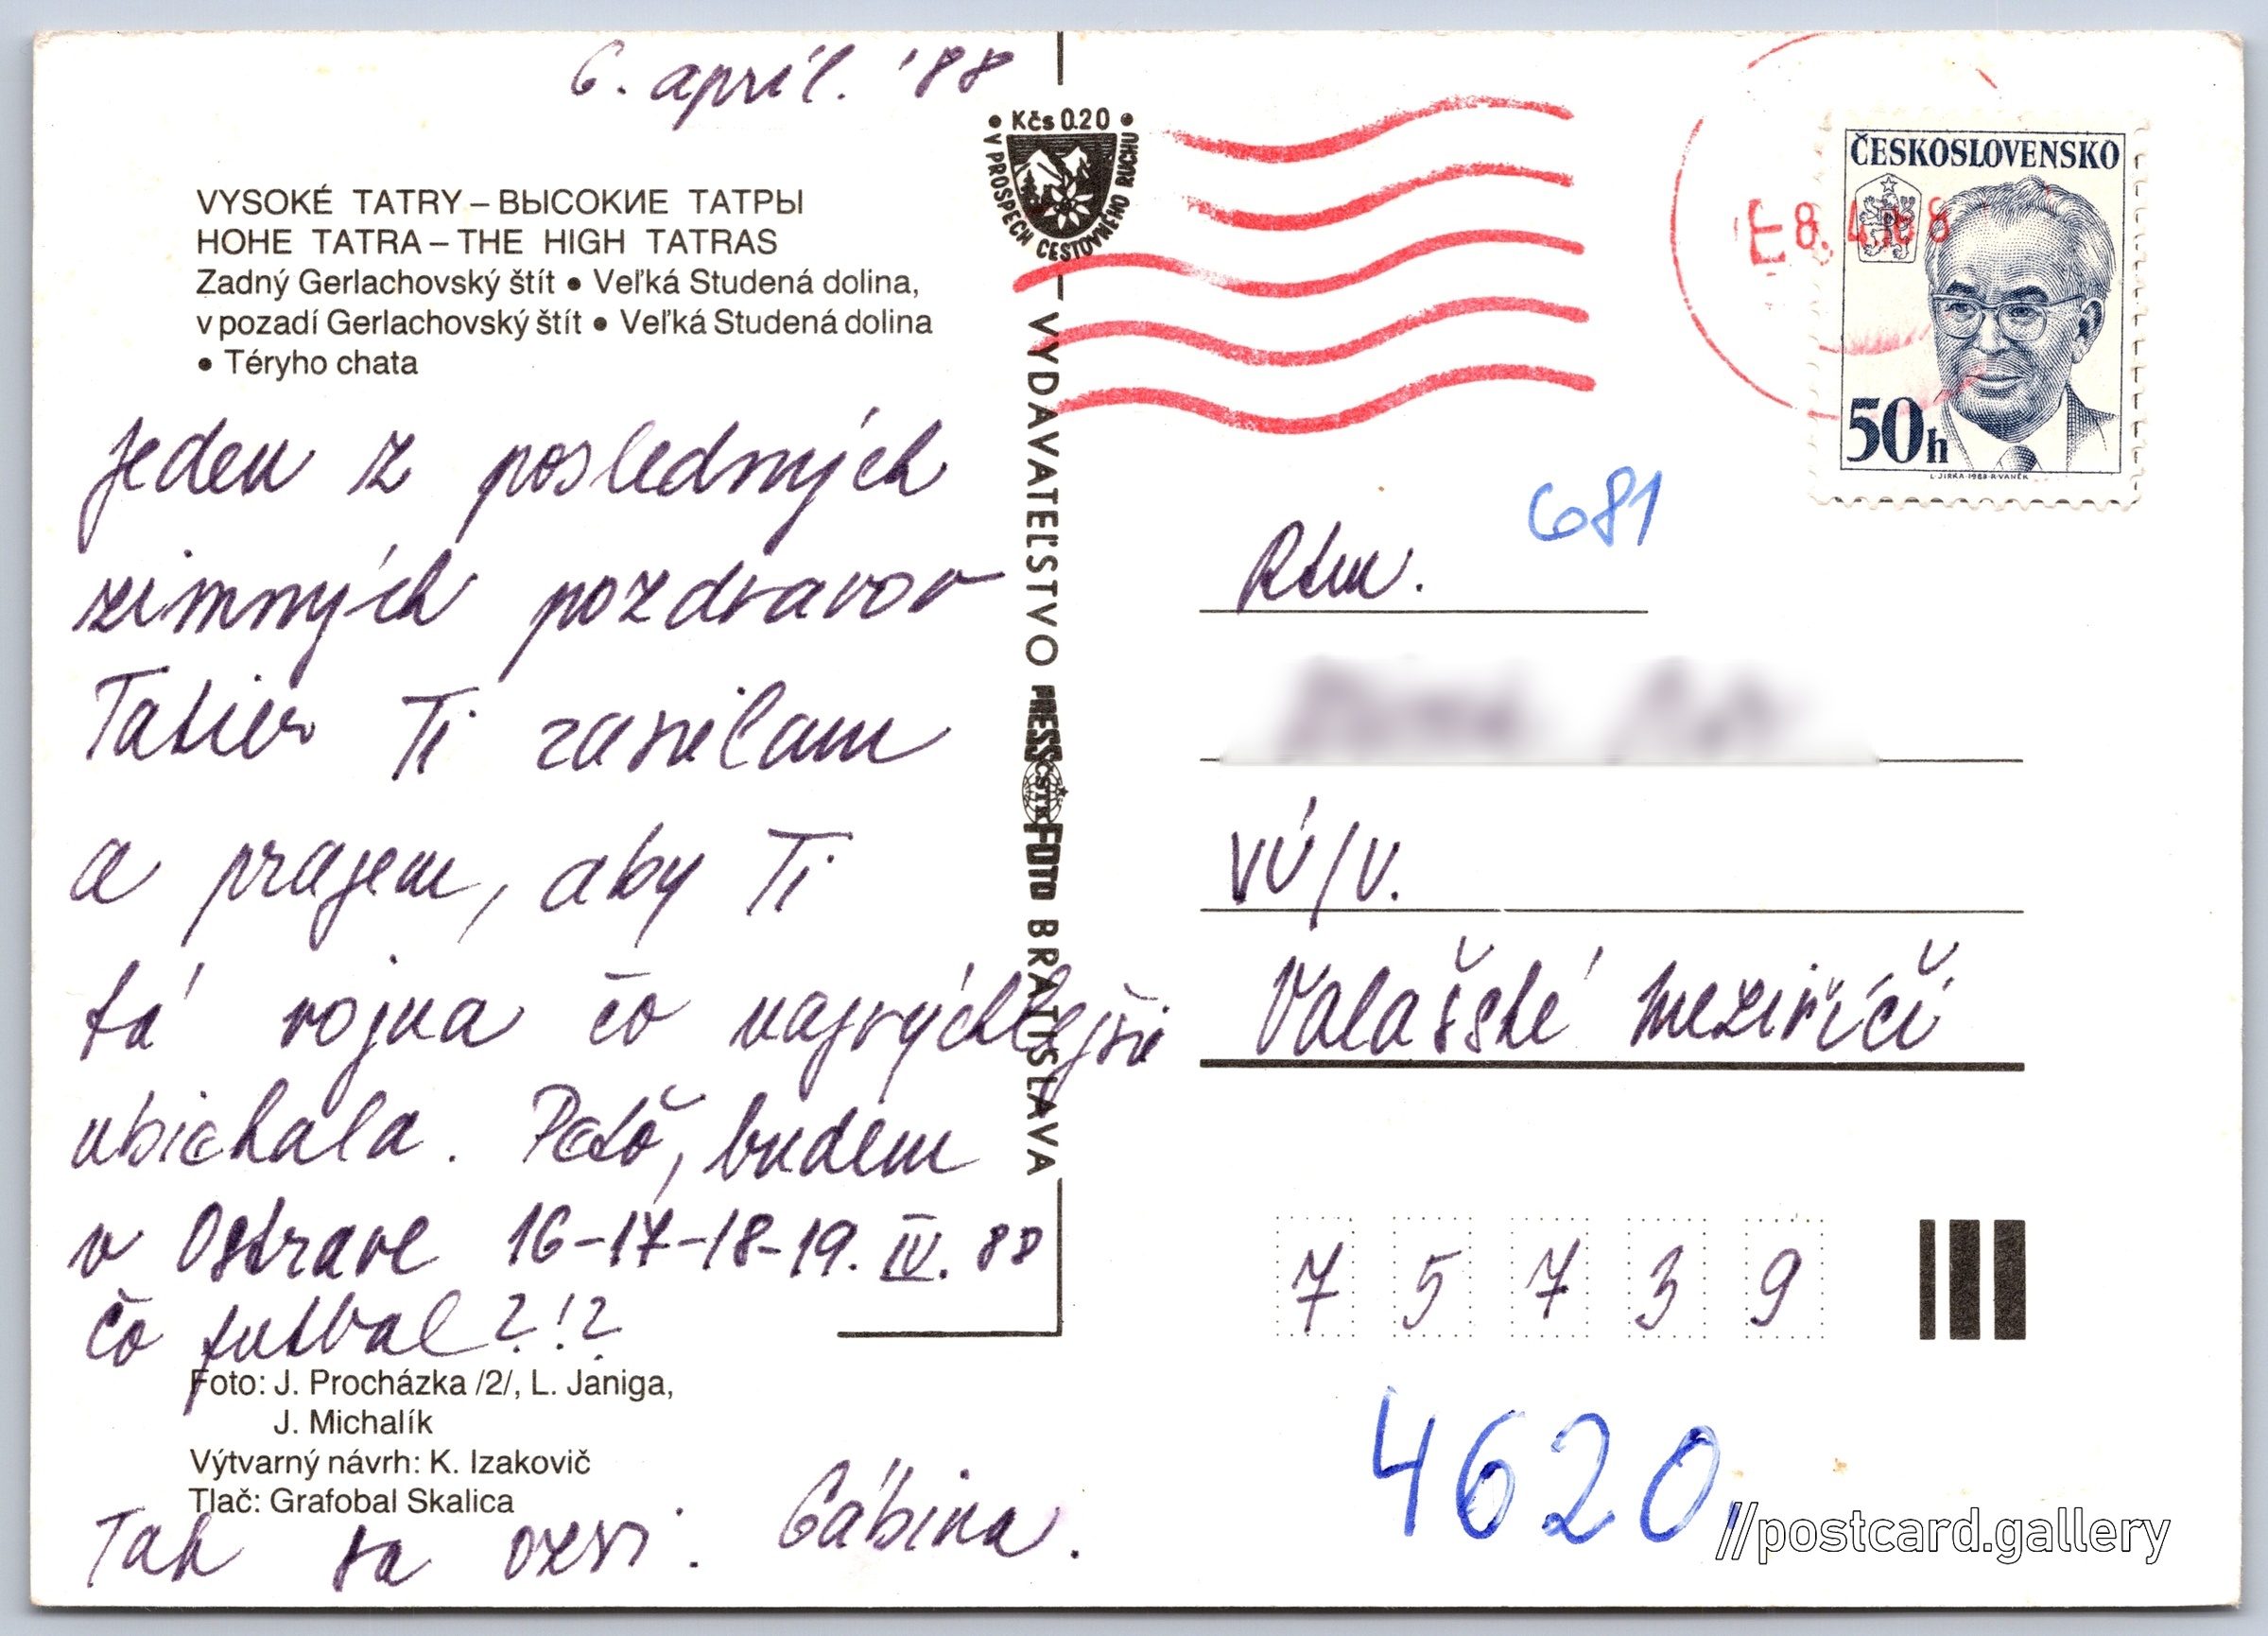 6. apríl. '88
VYSOKÉ TATRY – ВЫСОКИЕ ТАТРЫ
HOHE TATRA – THE HIGH TATRAS
Zadný Gerlachovský štít • Veľká Studená dolina,
v pozadí Gerlachovský štít • Veľká Studená dolina
• Téryho chata
Jeden z posledných
zimných pozdravov
Tatier Ti zasielam
a prajem, aby Ti
tá vojna čo najrýchlejšie
ubiehala. Peťo, budem
v Ostrave 16-17-18-19. IV. 88
čo futbal?!?
Foto: J. Procházka /2/, L. Janiga,
J. Michalík
Výtvarný návrh: K. Izakovič
Tlač: Grafobal Skalica
Tak sa ozvi. Gábina.
• Kčs 0.20 •
V PROSPECH CESTOVNÉHO RUCHU
VYDAVATEĽSTVO PRESSFOTO BRATISLAVA
ČSTK
8. 4. 88
ČESKOSLOVENSKO
50h
L. JIRKA-1983-R. VANĚK
681
VÚ/V.
Valašské Meziříčí
7 5 7 3 9
4620
//postcard.gallery